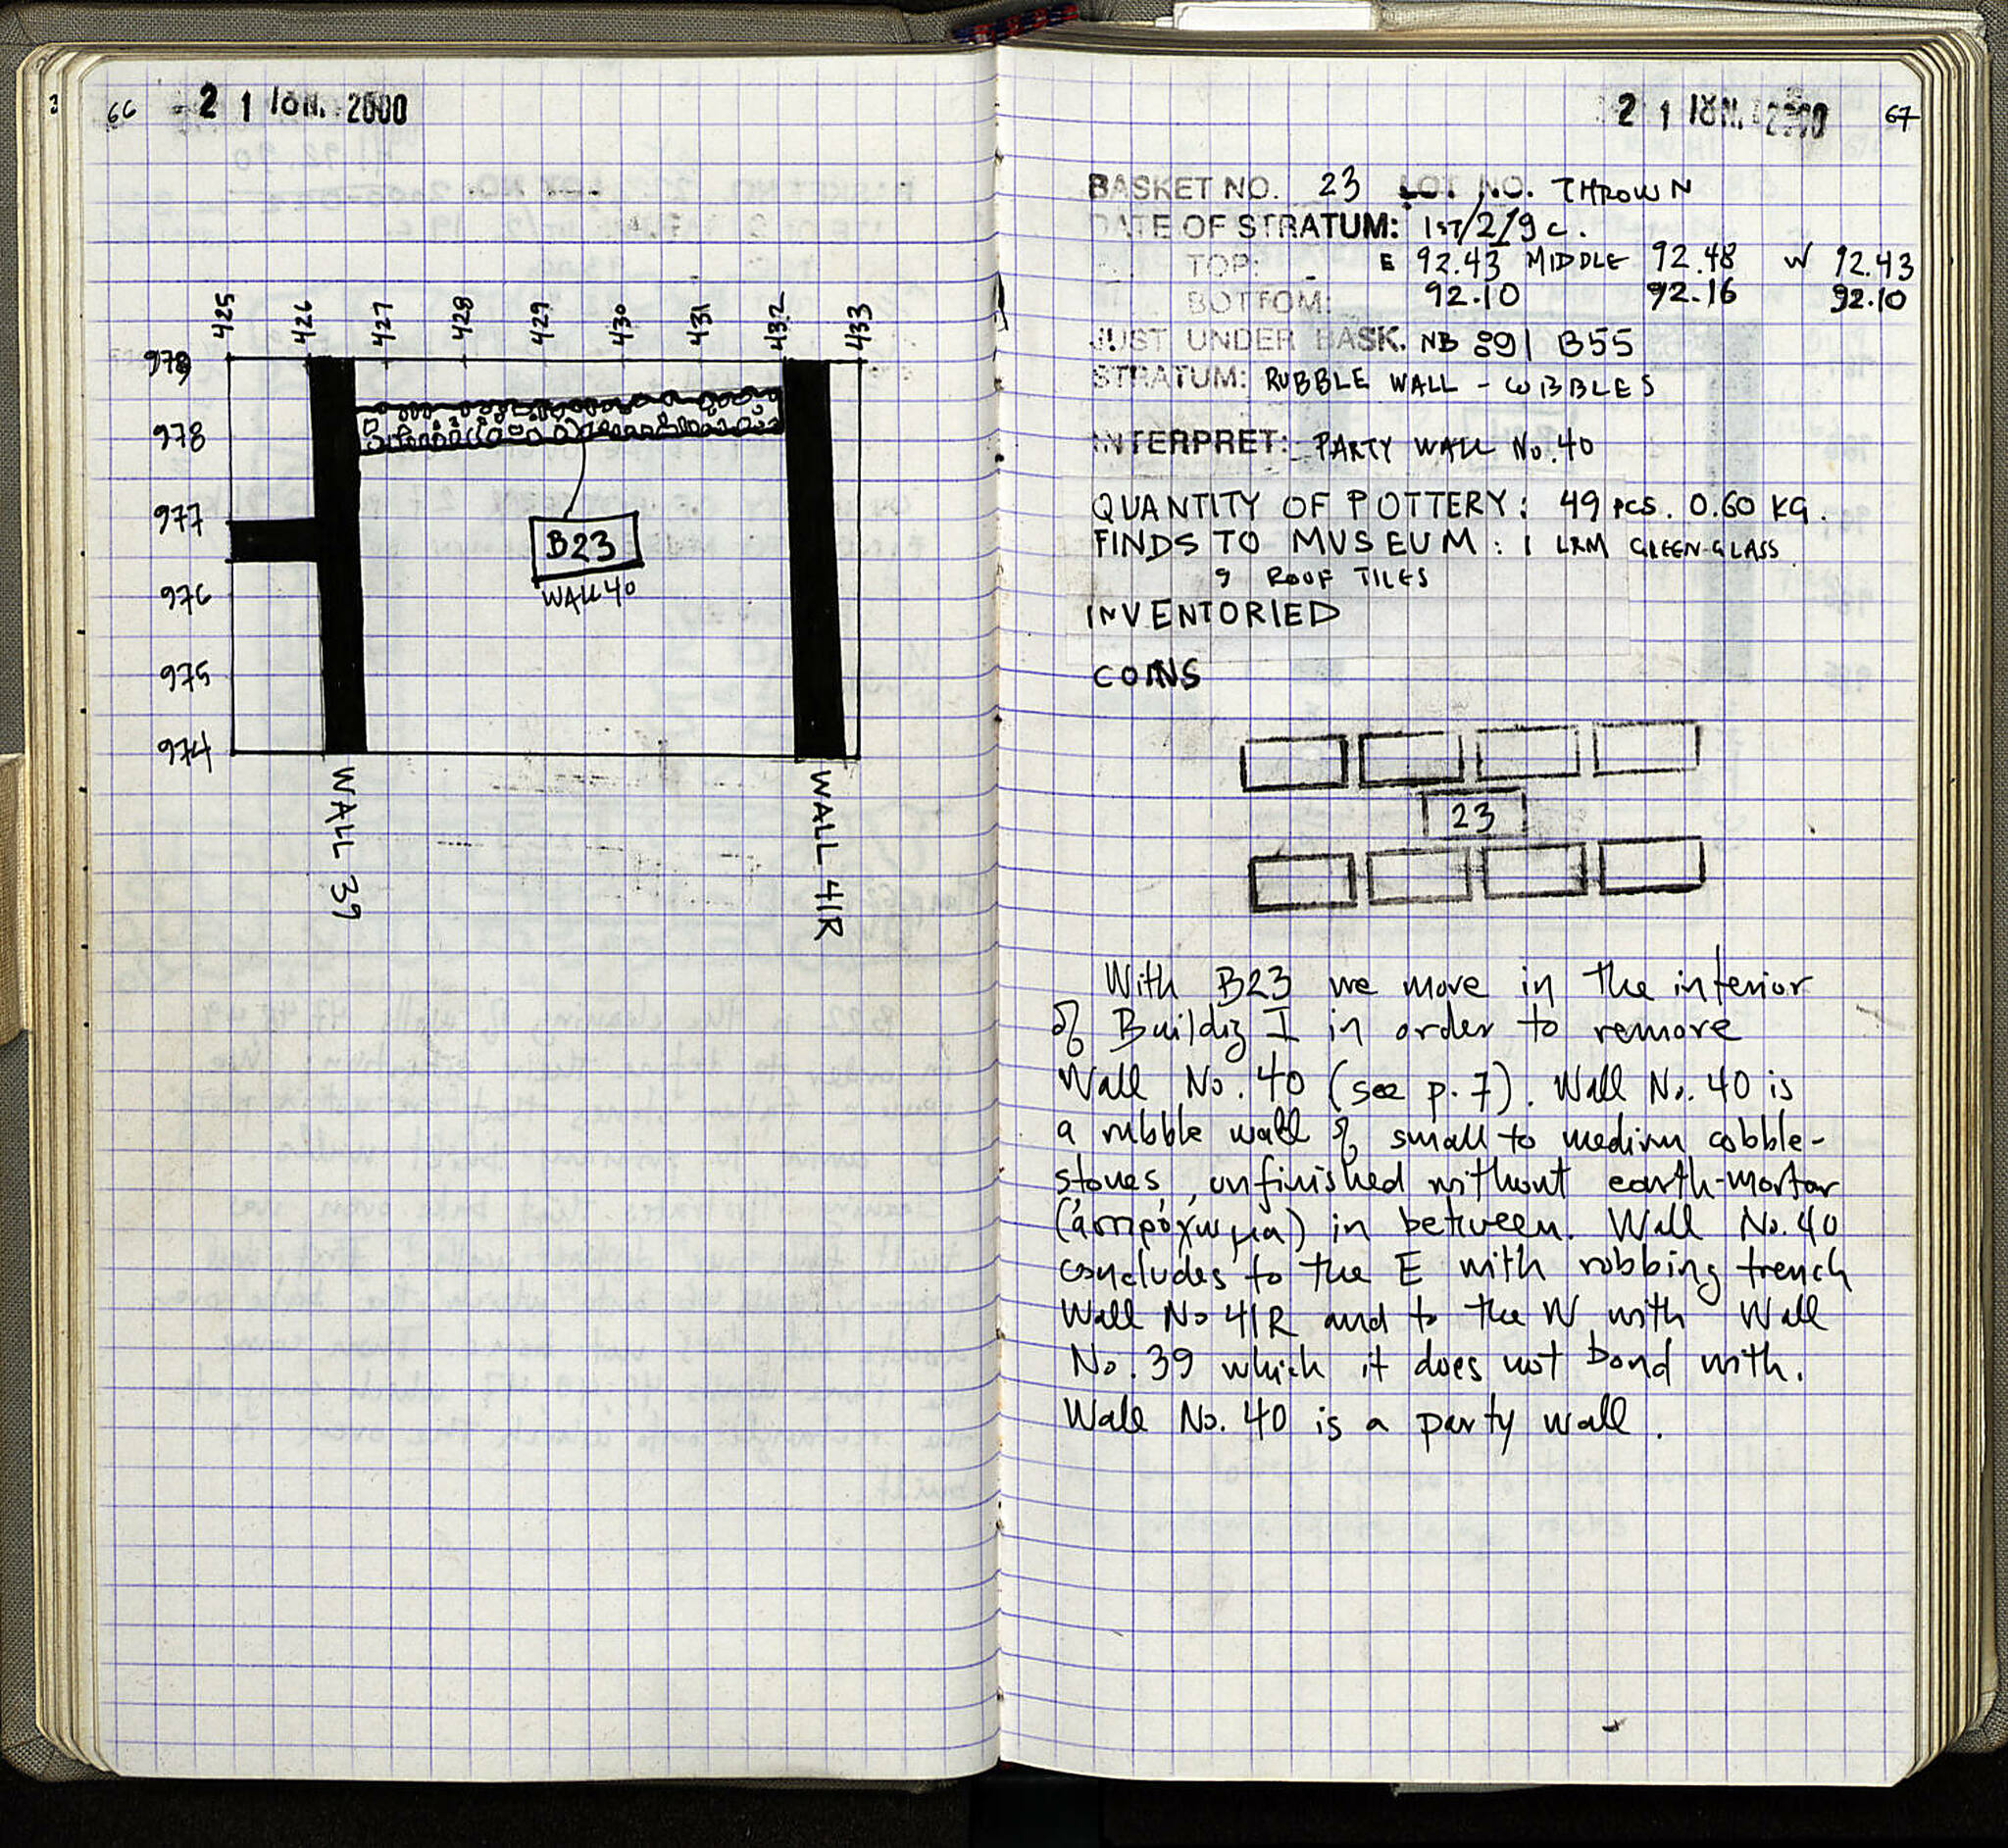 66
2 1 ΙΟΥΝ. 2000
425 426 427 428 429 430 431 432 433
979
978
977
976
975
974
B23
WALL 40
WALL 39
WALL 41R
2 1 ΙΟΥΝ. 2000
67
BASKET NO. 23 LOT NO. THROWN
DATE OF STRATUM: 1ST/2/19 c.
TOP: E 92.43 MIDDLE 92.48 W 92.43
BOTTOM: 92.10 92.16 92.10
JUST UNDER BASK. NB 891 B55
STRATUM: RUBBLE WALL - COBBLES
INTERPRET: PARTY WALL No. 40
QUANTITY OF POTTERY: 49 pcs. 0.60 KG.
FINDS TO MUSEUM: 1 LRM GREEN GLASS
9 ROOF TILES
INVENTORIED
COINS
23
With B23 we move in the interior
of Building I in order to remove
Wall No. 40 (see p. 7). Wall No. 40 is
a rubble wall of small to medium cobble-
stones, unfinished without earth-mortar
(ἀσπρόχωμα) in between. Wall No. 40
concludes to the E with robbing trench
Wall No 41R and to the W with Wall
No. 39 which it does not bond with.
Wall No. 40 is a party wall.